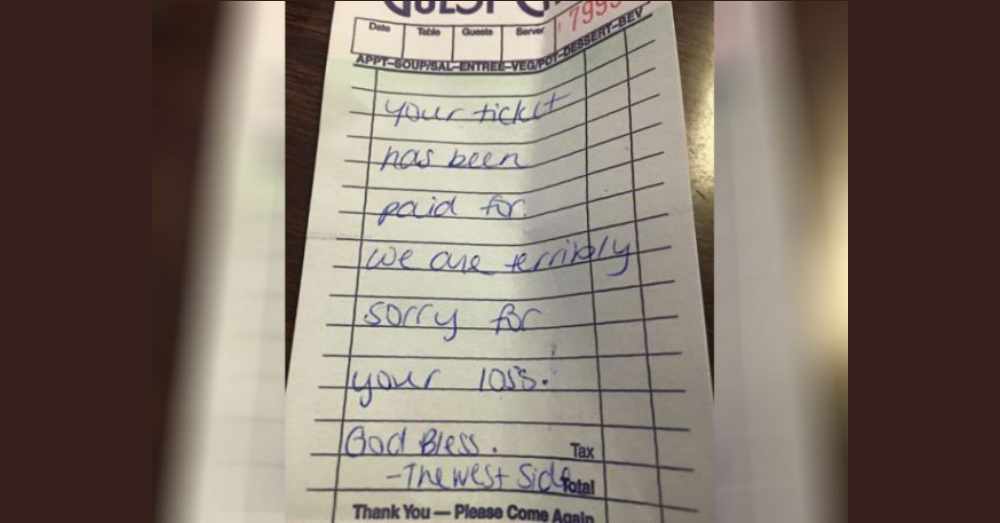 GUEST
7995
Date Table Guests Server
APPT–SOUP/SAL–ENTREE–VEG/POT–DESSERT–BEV
your ticket
has been
paid for.
we are terribly
sorry for
your loss.
God Bless.
Tax
-The West Side
Total
Thank You — Please Come Again